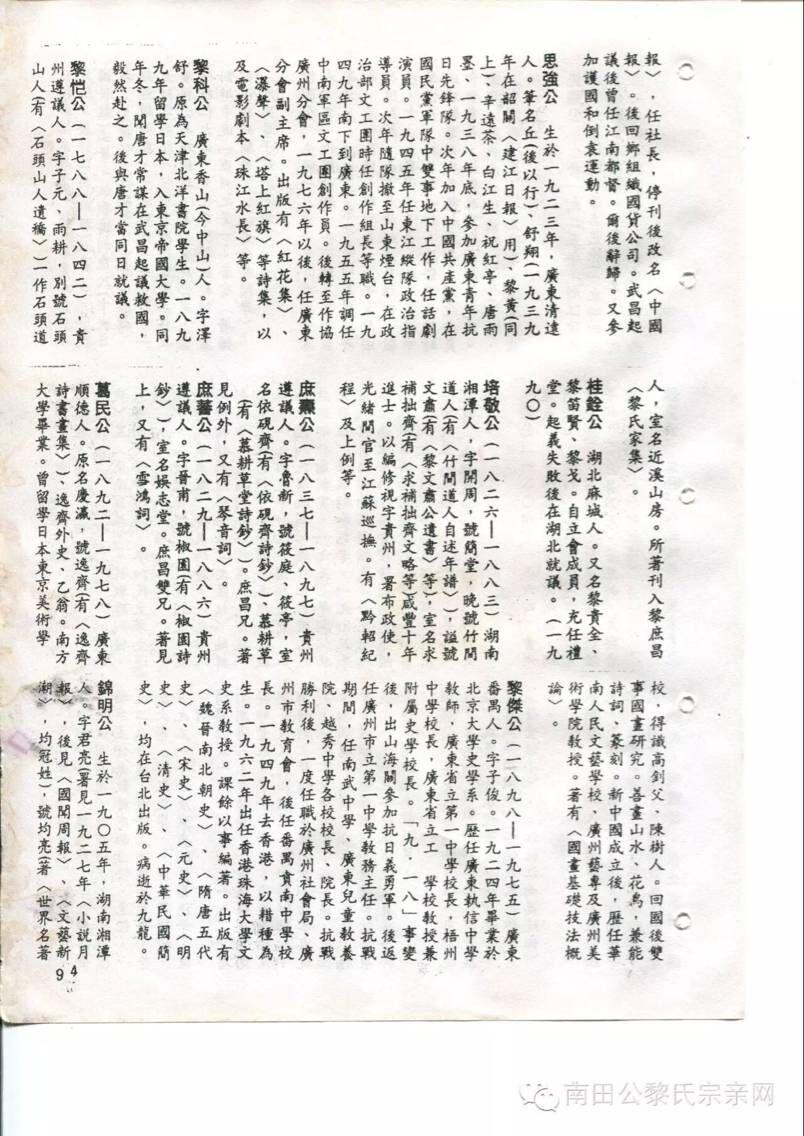 報〉，任社長，停刊後改名〈中國
報〉。後回鄉組織國貨公司。武昌起
議後曾任江南都督。爾後辭歸。又參
加護國和倒袁運動。
思強公　生於一九二三年，廣東清遠
人。筆名丘(後以行)、舒翔(一九三九
年在韶關〈建江日報〉用)、黎黃(同
上)、辛遠茶、白江生、祝紅亭、唐雨
墨、一九三八年底，參加廣東青年抗
日先鋒隊。次年加入中國共產黨，在
國民黨軍隊中雙事地下工作，任話劇
演員。一九四五年任東江縱隊政治指
導員。次年隨隊撤至山東煙台，在政
治部文工團時任創作組長等職。一九
四九年南下到廣東。一九五五年調任
中南軍區文工團創作員。後轉至作協
廣州分會，一九七六年以後，任廣東
分會副主席。出版有〈紅花集〉、
〈瀑聲〉、〈塔上紅旗〉等詩集，以
及電影劇本〈珠江水長〉等。
黎科公　廣東香山(今中山)人。字澤
舒。原為天津北洋書院學生。一八九
九年留學日本，入東京帝國大學。同
年冬，聞唐才常謀在武昌起議救國，
毅然赴之。後與唐才當同日就議。
黎愷公(一七八八—一八四二)，貴
州遵議人。字子元、雨耕，別號石頭
山人(有〈石頭山人遺橋〉)一作石頭道
人，室名近溪山房。所著刊入黎庶昌
〈黎氏家集〉。
桂銓公　湖北麻城人。又名黎貴全、
黎笛賢、黎戈。自立會成員，充任禮
堂。起義失敗後在湖北就議。(一九
九○)
培敬公(一八二六—一八八三)湖南
湘潭人，字開周，號簡堂，晚號竹間
道人(有〈什間道人自述年譜〉)，諡號
文肅(有〈黎文肅公遺書〉等)，室名求
補拙齊(有〈求補拙齊文略等)咸豐十年
進士。以編修視字貴州，署布政使，
光緒間官至江蘇巡撫。有〈黔軺紀
程〉及上例等。
庶燾公(一八三七—一八九七)貴州
遵議人。字魯新，號筱庭、筱亭，室
名依硯齊(有〈依硯齊詩鈔〉)、慕耕草
(有〈慕耕草堂詩鈔〉)。庶昌兄。著
見例外，又有〈琴音詞〉。
庶蕃公(一八二九—一八八六)貴州
遵議人。字晉甫，號椒園(有〈椒園詩
鈔〉)，室名娛志堂。庶昌雙兄。著見
上，又有〈雪鴻詞〉。
葛民公(一八九二—一九七八)廣東
順德人。原名慶瀛，號逸齊(有〈逸齊
詩書畫集〉)、逸齊外史、乙翁。南方
大學畢業。曾留學日本東京美術學
校，得識高釗父、陳樹人。回國後雙
事國畫研究。善畫山水、花鳥，兼能
詩詞、篆刻。新中國成立後，歷任華
南人民文藝學校、廣州藝專及廣州美
術學院教授。著有〈國畫基礎技法概
論〉。
黎傑公(一八九八—一九七五)廣東
番禺人。字子俊。一九二四年畢業於
北京大學史學系。歷任廣東執信中學
教師，廣東省立第一中學校長，梧州
中學校長，廣東省立工　學校教授兼
附屬史學校長。「九．一八」事變
後，出山海關參加抗日義勇軍。後返
任廣州市立第一中學教務主任。抗戰
期間，任南武中學、廣東兒童教養
院、越秀中學各校校長、院長。抗戰
勝利後，一度任職於廣州社會局、廣
州市教育會，後任番禺賁南中學校
長。一九四九年去香港，以糟種為
生。一九六二年出任香港珠海大學文
史系教授。課餘以事編著。出版有
〈魏晉南北朝史〉、〈隋唐五代
史〉、〈宋史〉、〈元史〉、〈明
史〉、〈清史〉、〈中華民國簡
史〉，均在台北出版。病逝於九龍。
錦明公　生於一九○五年，湖南湘潭
人。字君亮(署見一九二七年〈小說月
報〉，後見〈國聞周報〉、〈文藝新
潮〉，均冠姓)，號均亮(著〈世界名著
94
南田公黎氏宗亲网